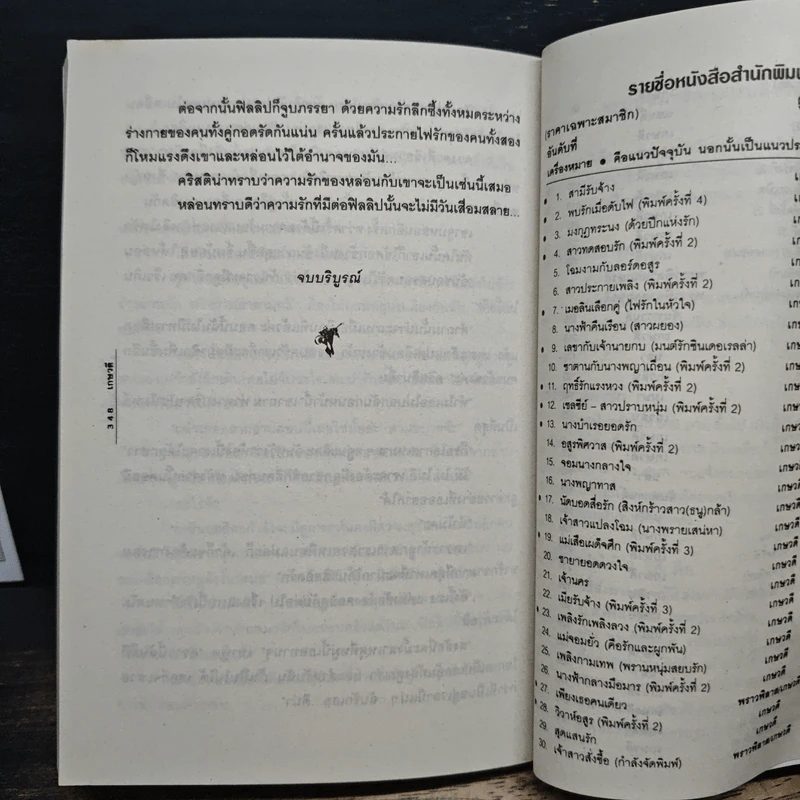 ต่อจากนั้นฟิลลิปก็จูบภรรยา ด้วยความรักลึกซึ้งทั้งหมดระหว่าง
ร่างกายของคนทั้งคู่กอดรัดกันแน่น ครั้นแล้วประกายไฟรักของคนทั้งสอง
ก็โหมแรงดึงเขาและหล่อนไว้ใต้อำนาจของมัน...
คริสติน่าทราบว่าความรักของหล่อนกับเขาจะเป็นเช่นนี้เสมอ
หล่อนทราบดีว่าความรักที่มีต่อฟิลลิปนั้นจะไม่มีวันเสื่อมสลาย...
จบบริบูรณ์
348 เกษวดี
รายชื่อหนังสือสำนักพิมพ
(ราคาเฉพาะสมาชิก)
อันดับที่
เครื่องหมาย ● คือแนวปัจจุบัน นอกนั้นเป็นแนวประ
● 1. สามีรับจ้าง
● 2. พบรักเมื่อดับไฟ (พิมพ์ครั้งที่ 4)
● 3. มงกุฎทระนง (ด้วยปีกแห่งรัก)
● 4. สาวทดสอบรัก (พิมพ์ครั้งที่ 2)
5. โฉมงามกับลอร์ดอสูร
6. สาวประกายเพลิง (พิมพ์ครั้งที่ 2)
● 7. เมอลินเลือกคู่ (ไฟรักในหัวใจ)
8. นางฟ้าคืนเรือน (สาวผยอง)
● 9. เลขากับเจ้านายกบ (มนต์รักซินเดอเรลล่า)
10. ซาตานกับนางพญาเถื่อน (พิมพ์ครั้งที่ 2)
● 11. ฤทธิ์รักแรงหวง (พิมพ์ครั้งที่ 2)
● 12. เชลซีย์ - สาวปราบหนุ่ม (พิมพ์ครั้งที่ 2)
● 13. นางบำเรอยอดรัก
14. อสูรพิศวาส (พิมพ์ครั้งที่ 2)
15. จอมนางกลางใจ
16. นางพญาทาส
● 17. นัดบอดสื่อรัก (สิงห์กร้าวสาว(ธนู)กล้า) เกษวดี
18. เจ้าสาวแปลงโฉม (นางพรายเสน่หา) เกษวดี
● 19. แม่เสือเผด็จศึก (พิมพ์ครั้งที่ 3) เกษวดี
20. ชายายอดดวงใจ เกษวดี
21. เจ้านคร เกษวดี
22. เมียรับจ้าง (พิมพ์ครั้งที่ 3) เกษวดี
● 23. เพลิงรักเพลิงลวง (พิมพ์ครั้งที่ 2) เกษวดี
24. แม่จอมยั่ว (คือรักและผูกพัน) เกษวดี
25. เพลิงกามเทพ (พรานหนุ่มสยบรัก) เกษวดี
26. นางฟ้ากลางมือมาร (พิมพ์ครั้งที่ 2) เกษวดี
● 27. เพียงเธอคนเดียว พราวพิลาส/เกษวดี
● 28. วิวาห์อสูร (พิมพ์ครั้งที่ 2) เกษวดี
29. สุดแสนรัก เกษวดี
30. เจ้าสาวสั่งซื้อ (กำลังจัดพิมพ์) พราวพิลาส/เกษวดี